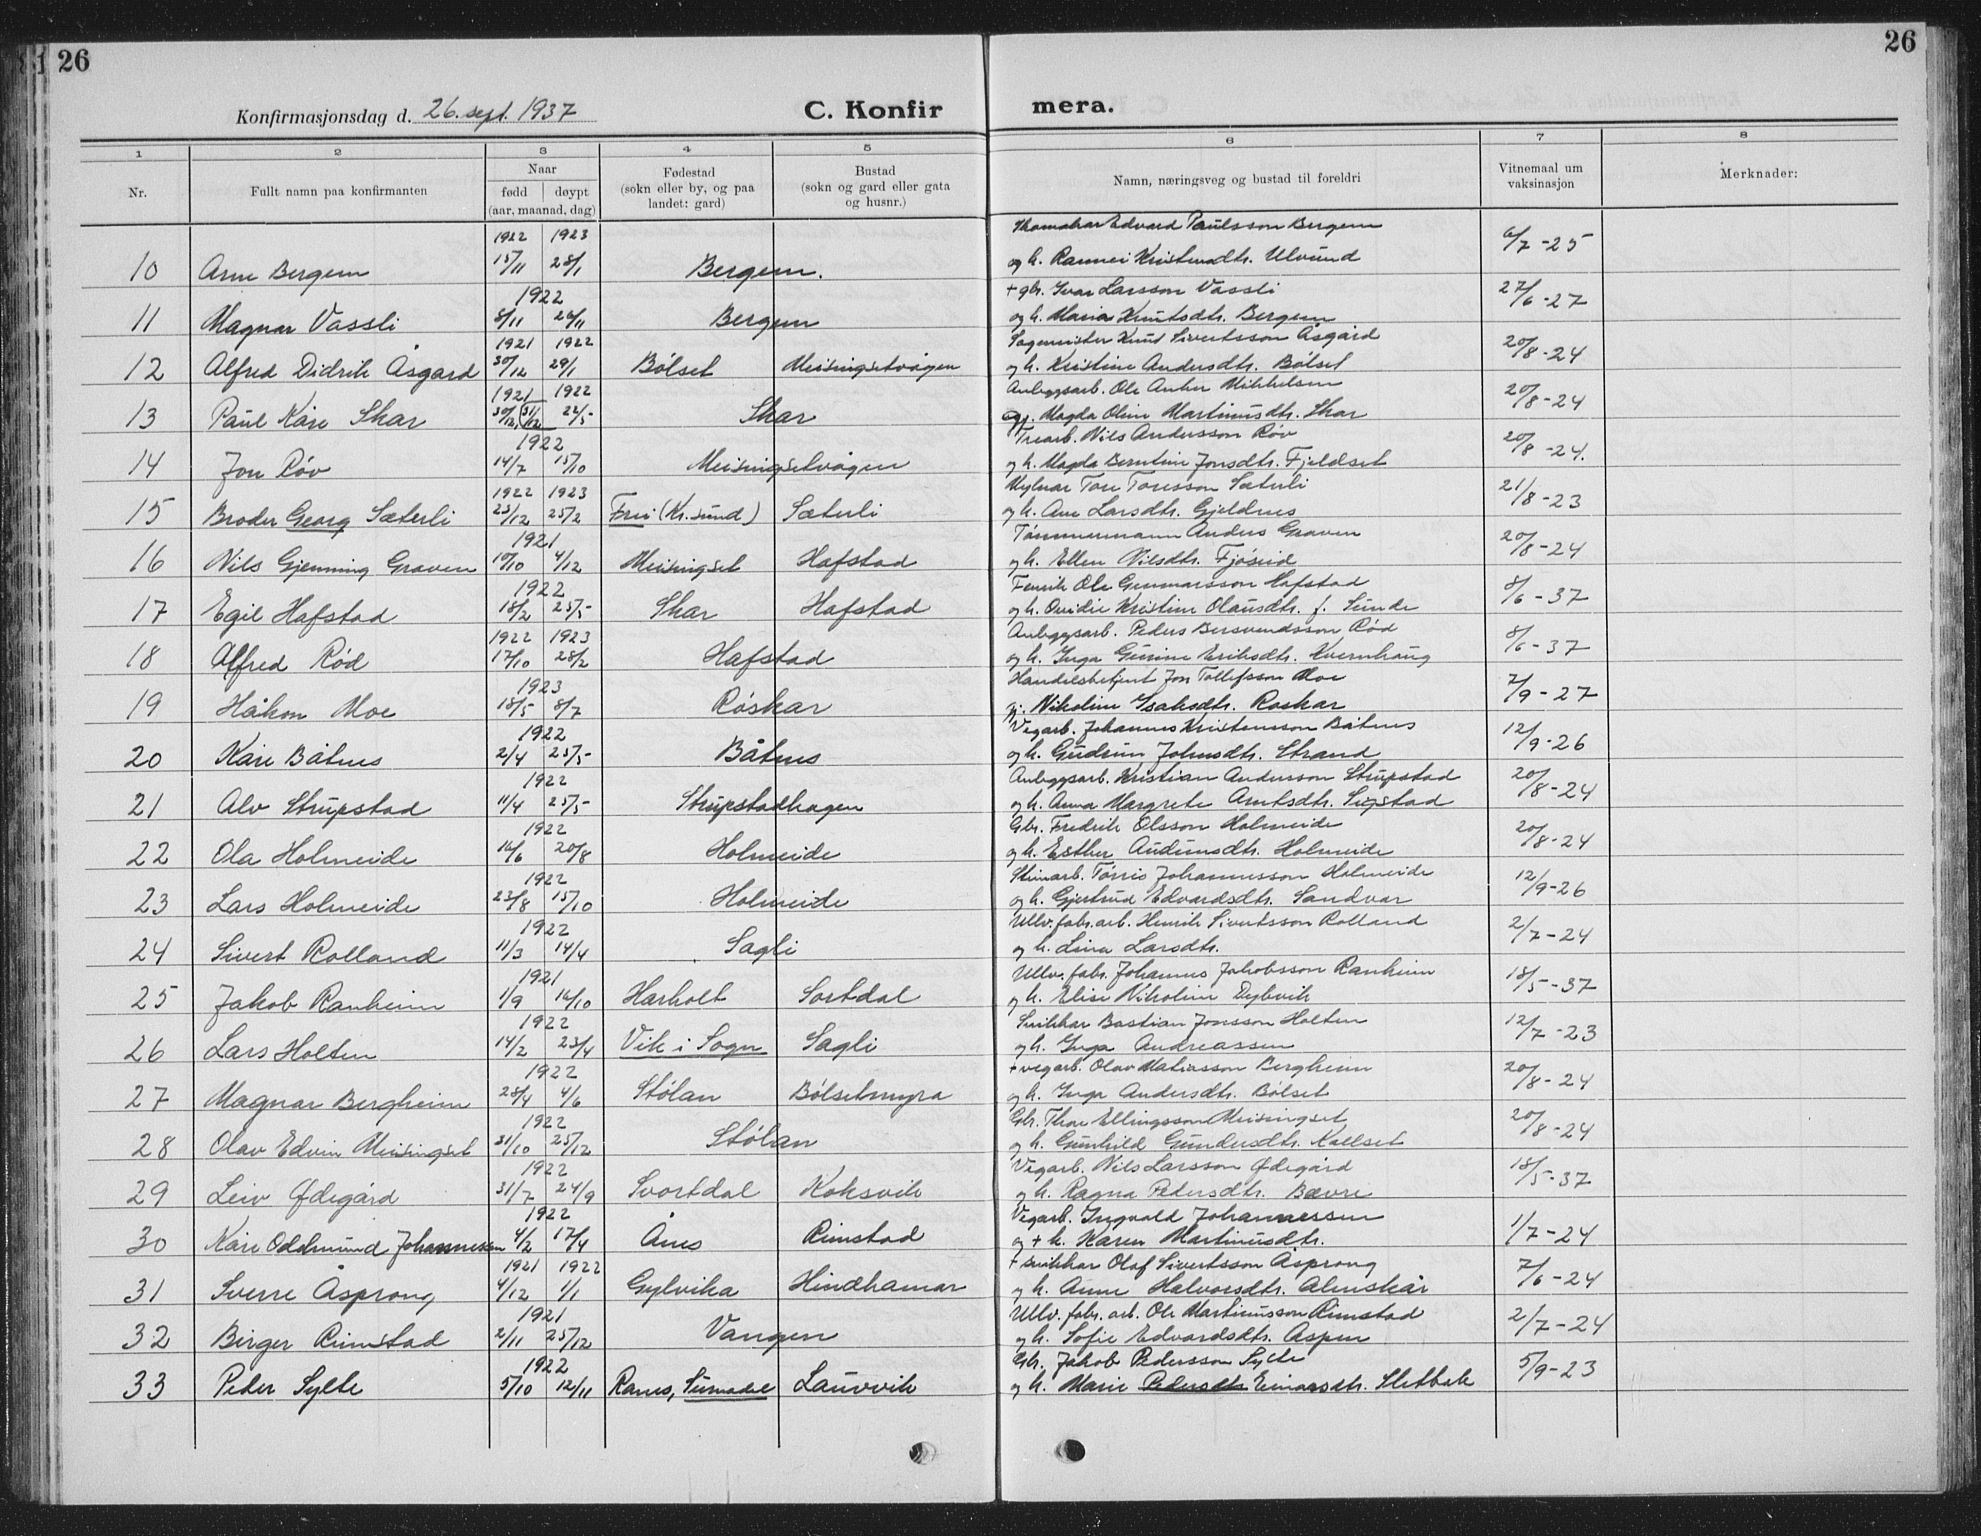 26
26
Konfirmasjonsdag d. 26. sept. 1937
C. Konfir mera.
1 2 3 4 5 6 7 8
Nr. Fullt namn paa konfirmanten Naar fødd døypt (aar, maanad, dag) Fødestad (sokn eller by, og paa landet: gard) Bustad (sokn og gard eller gata og husnr.) Namn, næringsveg og bustad til foreldri Vitnemaal um vaksinasjon Merknader:
1922 1923 Edvard Paulsson Bergem
10 Arne Bergem 15/11 28/1 Bergem. og h. Rannei Kristendtr. Ulvund 6/7-25
1922 + gbr. Ivar Larsson Vassli
11 Magnar Vassli 8/11 26/11 Bergem og h. Maria Knutsdtr. Bergem 27/6-27
1921 1922 Sagmeister Knud Sivertsson Åsgård
12 Alfred Didrik Åsgard 30/12 29/1 Bølset Meisingsetvågen og h. Kristine Andersdtr. Bølset 20/8-24
1921 1922 Anleggsarb. Ole Anker Mikkelsen
13 Paul Kåre Skar 30/12 31/12 22/5- Skar Magda Oline Martinusdtr. Skar 20/8-24
1922 Trearb. Nils Andersson Røv
14 Jon Røv 14/7 15/10 Meisingsetvågen og h. Magda Berntine Jonsdtr. Fjeldset 20/8-24.
1922 1923 Mylnar Tore Toresson Sæterli
15 Broder Georg Sæterli 23/12 25/2 Frei (Kr.sund) Sæterli og h. Ane Larsdtr. Gjeldnes 21/8-23
1921 Tømmermann Anders Graven
16 Nils Gjenning Graven 10/10 4/12 Meisingset Hafstad og h. Ellen Nilsdtr. Fjøseid 20/8-24
1922 Fenrik Ole Gunnarsson Hafstad
17 Egil Hafstad 18/2 25/5- Skar Hafstad og h. Ovidie Kristine Olausdtr. f. Sunde 8/6-37
1922 1923 Anleggsarb. Peders Bersvendsson Rød
18 Alfred Rød 17/10 28/2 Hafstad og h. Inga Gurine Eriksdtr. Kvernhaug 8/6-37
1923 Handelsbetjent Jon Tollefsson Moe
19 Håkon Moe 18/5- 8/7 Røskar Nikoline Isaksdtr. Roskar 7/9-27
1922 Vegarb. Johannes Kristensson Båtnes
20 Kåre Båtnes 2/4 25/5- Båtnes og h. Gudrun Johnsdtr. Strand 12/9-26
1922 Anleggsarb. Kristian Andersson Strupstad
21 Alv Strupstad 11/4 25/5- Strupstadhagen og h. Anna Margrete Arntsdtr. Sigstad 20/8-24
1922 Gbr. Fredrik Olsson Holmeide
22 Ola Holmeide 16/6 20/8 Holmeide og h. Esther Audunsdtr. Holmeide 20/8-24
1922 Steinarb. Tørris Johannesson Holmeide
23 Lars Holmeide 23/8 15/10 Holmeide og h. Gjertrud Edvardsdtr. Sandvar 12/9-26
1922 Ullv.fabr.arb. Henrik Sivertsson Rolland
24 Sivert Rolland 11/3 14/4 Sagli og h. Lina Larsdtr. 2/7-24
1921 Ullv. fabr. Johannes Jakobsson Ranheim
25 Jakob Ranheim 1/9 16/10 Harholt Sortdal og h. Elise Nikoline Dybvik 18/5-37
1922 Snikkar Bastian Jonsson Holten
26 Lars Holten 14/2 23/4 Vik i Sogn Sagli og h. Inga Andreassen 12/7-23
1922 + vegarb. Olav Matiasson Bergheim
27 Magnar Bergheim 28/4 4/6 Stølan Bølsetmyra og h. Inga Andersdtr. Bølset 20/8-24
1922 Gbr. Thore Ellingsson Meisingset
28 Olav Edvin Meisingset 31/10 25/12 Stølan og h. Gunhild Gundersdtr. Kallset 20/8-24
1922 Vegarb. Nils Larsson Ødegård
29 Leiv Ødegård 31/7 24/9 Svortdal Koksvik og h. Ragna Pedersdtr. Bævre 18/5-37
1922 Vegarb. Ingvald Johannessen
30 Kåre Oddmund Johannessen 4/2 17/4 Ånes Rimstad og + h. Karen Martinusdtr. 1/7-24
1921 1922 + snikkar Olaf Sivertsson Åsprong
31 Sverre Åsprong 4/12 1/1 Gylvika Hindhamar og h. Anne Halvorsdtr. Almskår 7/6-24
1921 Ullv. fabr. arb. Ole Martinusson Rimstad
32 Birger Rimstad 2/11 25/12 Vangen og h. Sofie Edvardsdtr. Aspen 2/7-24
1922 Gbr. Jakob Pedersson Sylte
33 Peder Sylte 5/10 12/11 Ranes, Surnadal Lauvvik og h. Marie Pedersdtr Einarsdtr. Sletbak 5/9-23